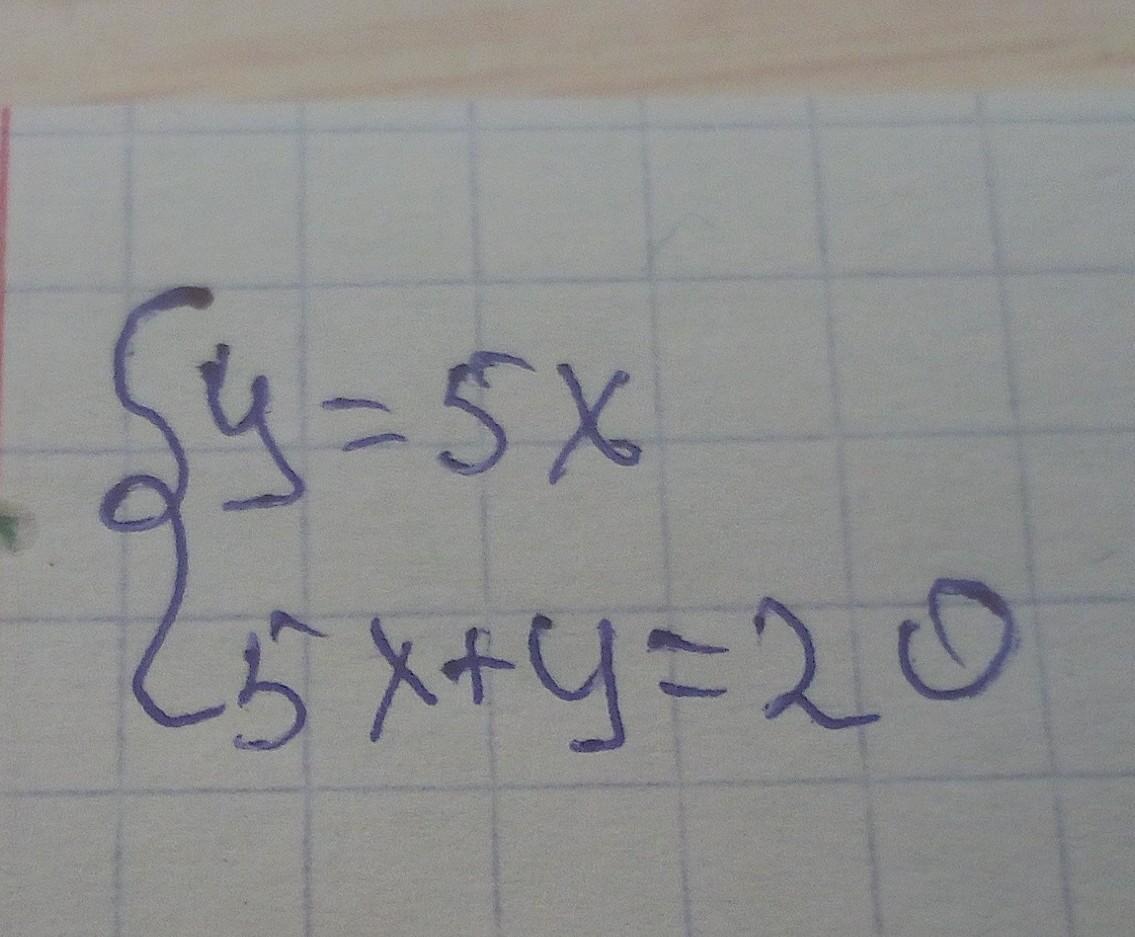 y = 5x
5x+y=20